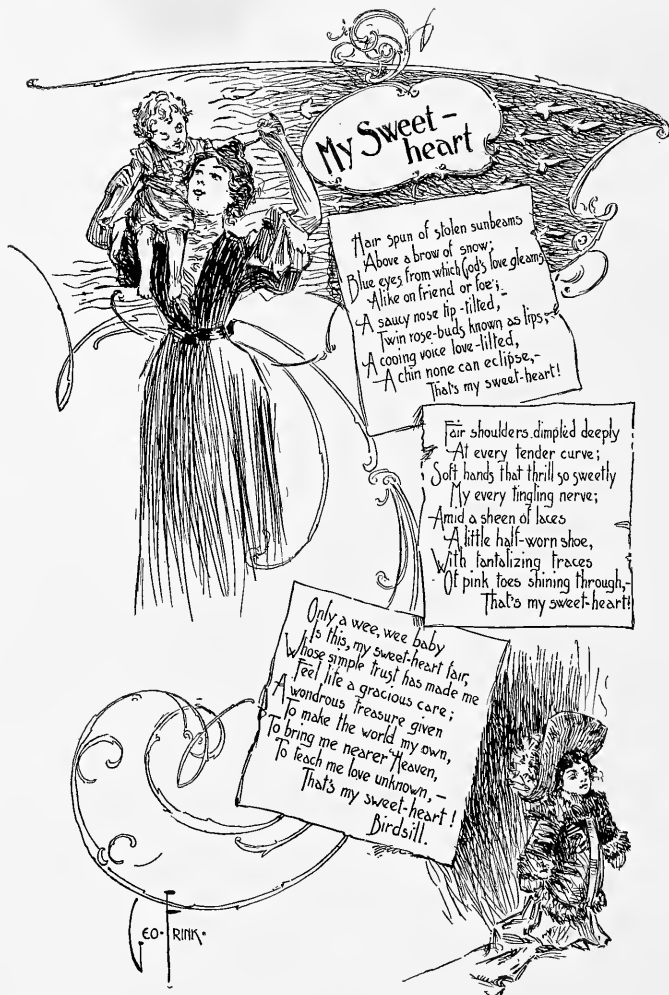 My Sweet-
heart
Hair spun of stolen sunbeams
Above a brow of snow;
Blue eyes from which God's love gleams
Alike on friend or foe;
A saucy nose tip-tilted,-
Twin rose-buds known as lips;-
A cooing voice love-lilted,
A chin none can eclipse,-
That's my sweet-heart!
Fair shoulders dimpled deeply
At every tender curve;
Soft hands that thrill so sweetly
My every tingling nerve;
Amid a sheen of laces
A little half-worn shoe,
With tantalizing traces
Of pink toes shining through,-
That's my sweet-heart!
Only a wee, wee baby
Is this, my sweet-heart fair,
Whose simple trust has made me
Feel life a gracious care;
A wondrous treasure given
To make the world my own,
To bring me nearer Heaven,
To teach me love unknown,-
That's my sweet-heart!
Birdsill.
GEO· FRINK·